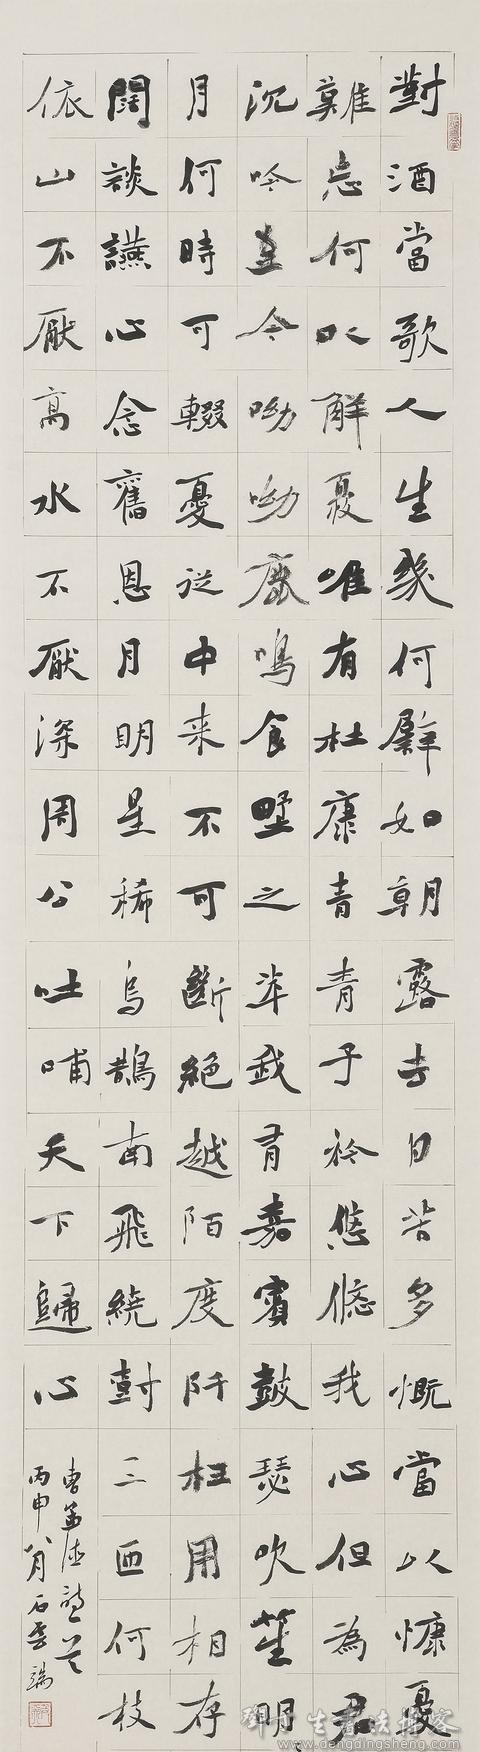 對酒當歌人生幾何譬如朝露去日苦多慨當以慷憂
難忘何以解憂唯有杜康青青子衿悠悠我心但為君
沉吟至今呦呦鹿鳴食野之苹我有嘉賓鼓瑟吹笙明
月何時可輟憂從中来不可斷絕越陌度阡枉用相存
闊談讌心念舊恩月明星稀烏鵲南飛繞樹三匝何枝
依山不厭高水不厭深周公吐哺天下歸心
曹孟德詩
丙申八月石雲端
生书法博客
www.dengdingsheng.com